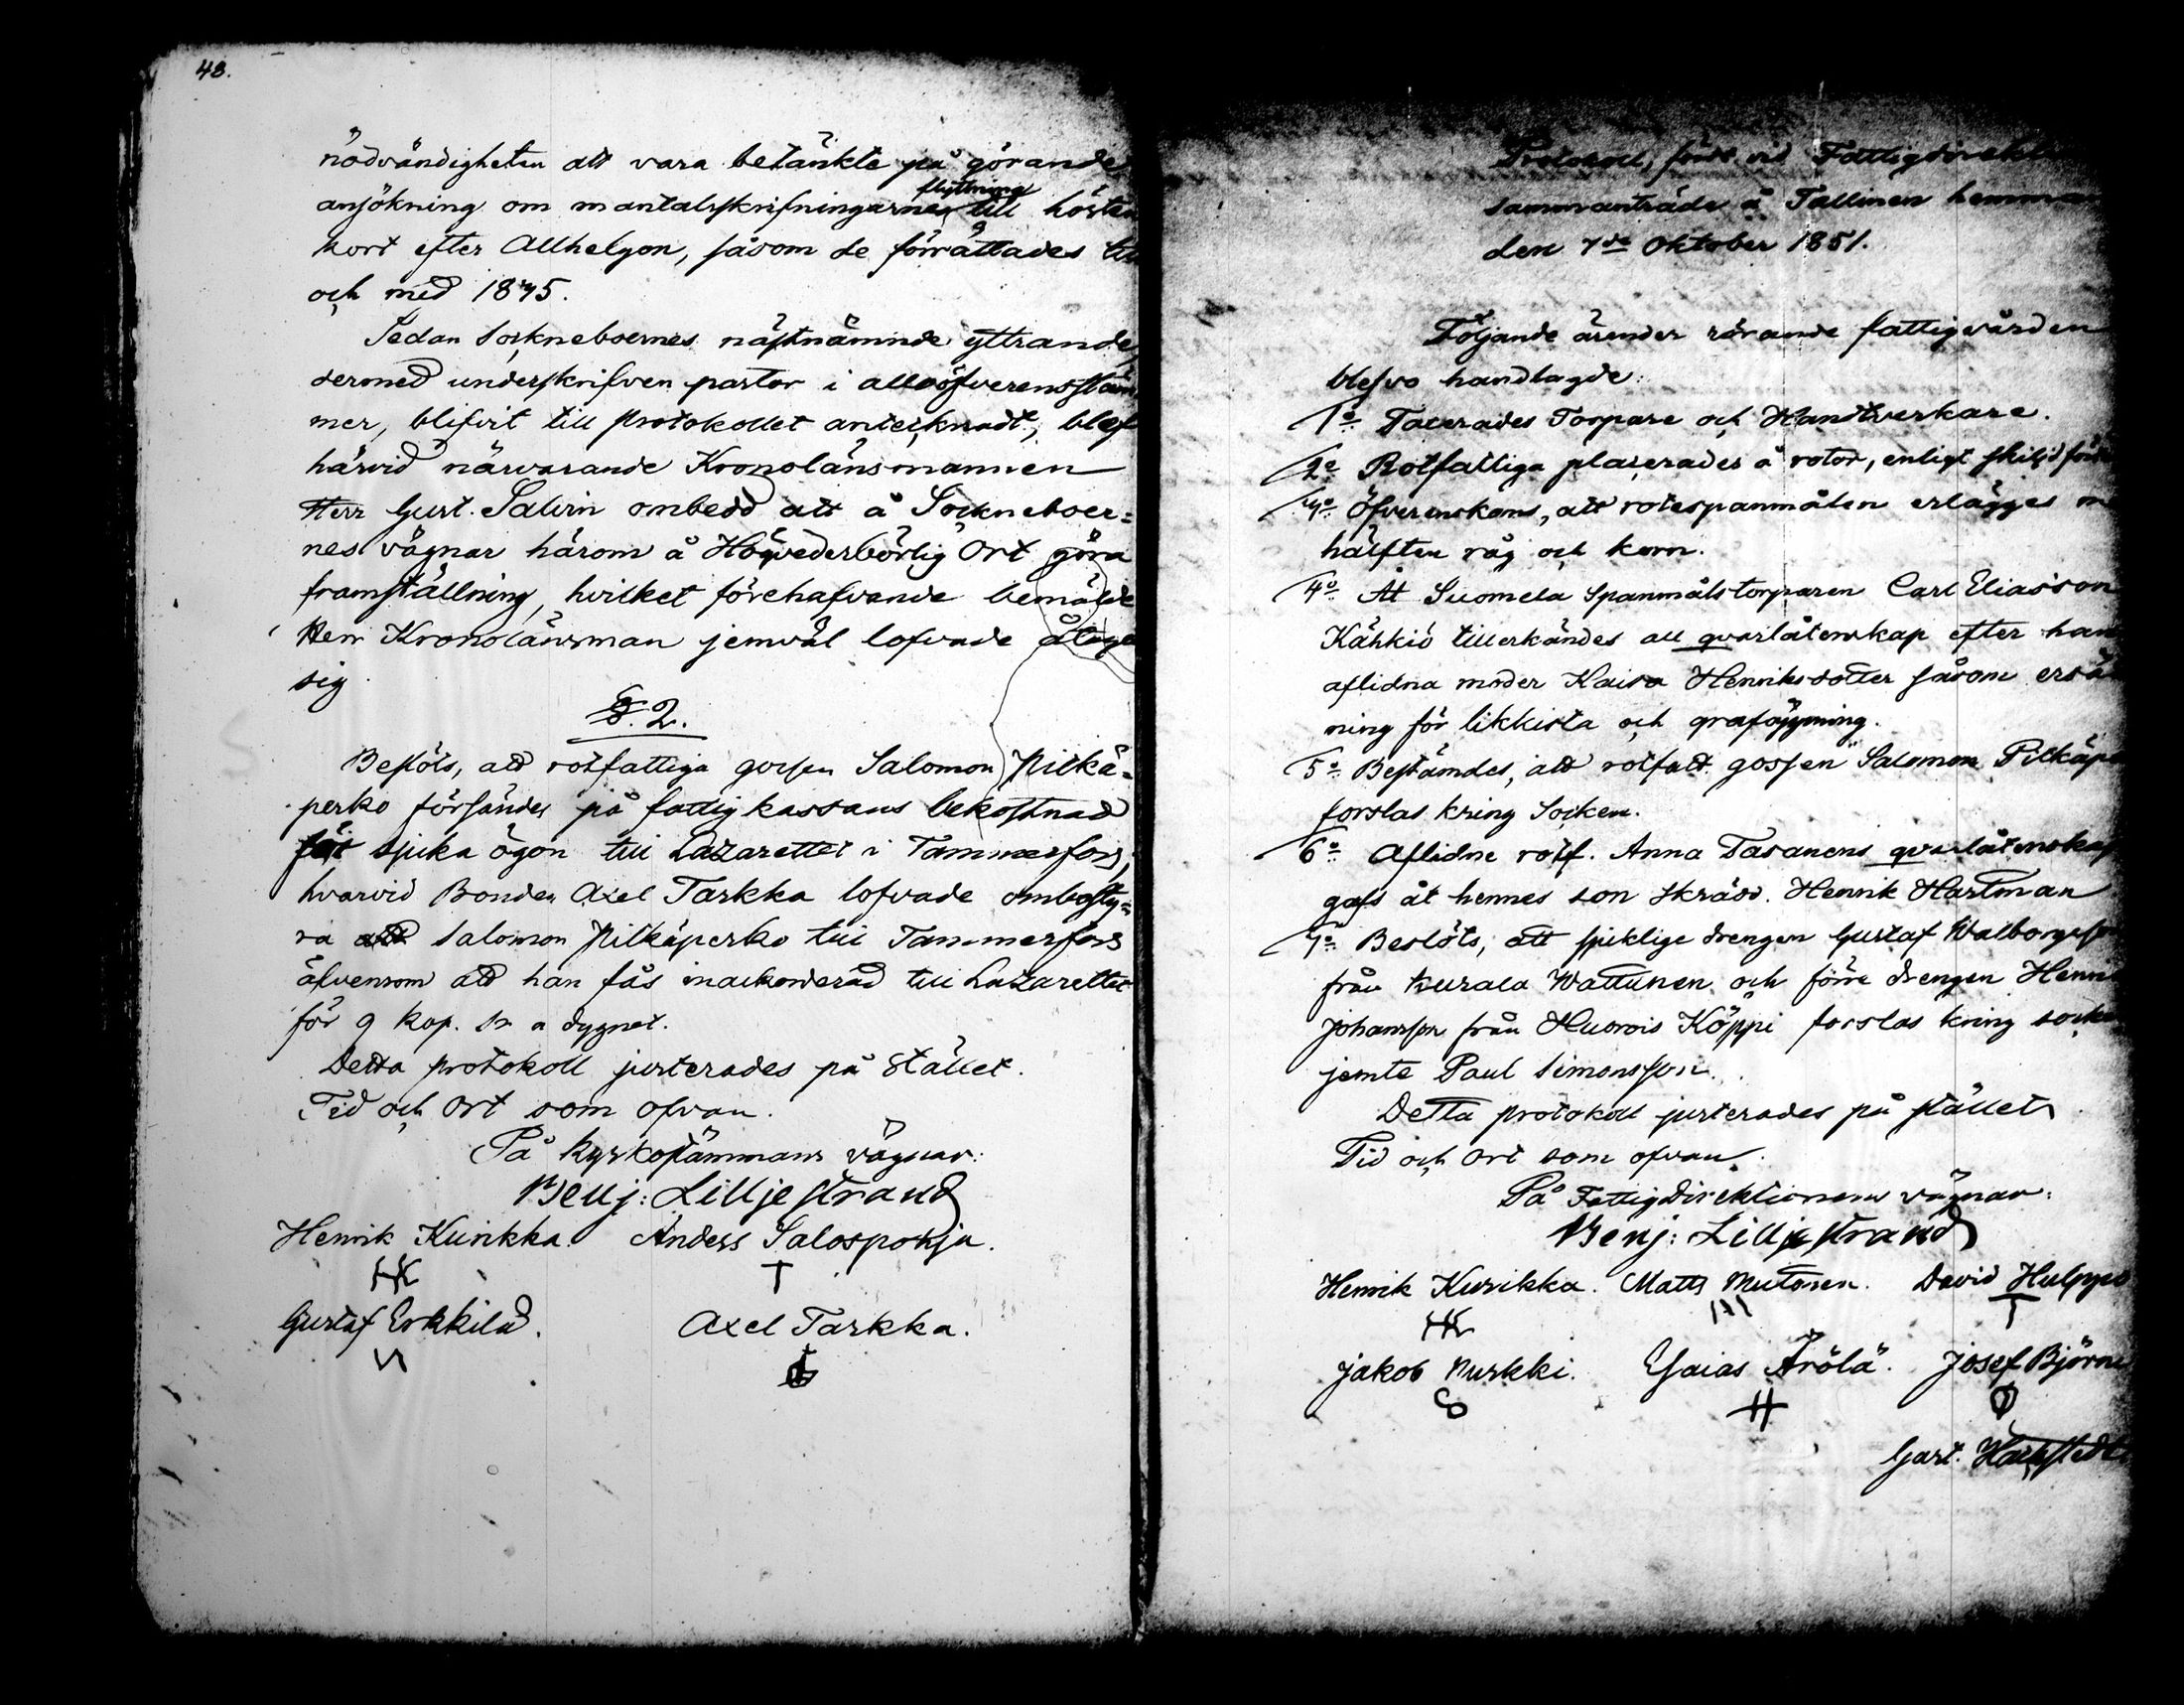 48.
nödvändigheten att vara betänkte på görande
ansökning om mantalsskrifningarnes flyttning till hösten
kort efter Allhelgon, såsom de förrättades till
och med 1845.
Sedan Sockneboernes nästnämnde yttrande,
dermed underskrifven pastor i allo öfverensstäm
mer, blifvit till protokollet antecknadt, blef
härvid närvarande Kronolänsmannen
Herr Gust. Salvin ombedd att å Sockneboer=
nes vägnar härom å Högvederbörlig Ort göra
framställning, hvilket förehafvande bemälde
Herr Kronolänsman jemväl lofvade åtaga
sig.
§. 2.
Beslöts, att rotfattiga gossen Salomon Pilkä=
perko försändes på fattigkassans bekostnad
för sjuka ögon till Lazarettet i Tammerfors,
hvarvid Bonden Axel Tarkka lofvade ombesty=
ra Salomon Pilkäperko till Tammerfors
äfvensom att han fås inackorderad till Lazarettet
för 9 kop. Sr a dygnet.
Detta protokoll justerades på Stället.
Tid och Ort som ofvan.
På Kyrkostämmans vägnar:
Benj: Lilljestrand
Henrik Kurikka. Anders Salospohja.
HK
Gustaf Erkkilä. Axel Tarkka.
Protokoll, fördt vid Fattigdirekt
sammanträde å Tallinen hemman
den 7de Oktober 1851.
Följande ärender rörande fattigvården
blefvo handlagde:
1o Taxerades Torpare och Handtverkare.
2o Rotfattiga placerades å rotor, enligt skild för
3o Öfverenskoms, att rotespanmålen erlägges
hälften råg och korn.
4o Åt Suomela Spanmålstorparen Carl Eliasson
Kähkiö tillerkändes all qvarlåtenskap efter han
aflidna moder Kaisa Henriksdotter såsom ersä
ning för likkista och graföppning.
5o Bestämdes, att rotfatt. gossen Salomon Pilkäpe
forslas kring Socken.
6o Aflidne rotf. Anna Tasanens qvarlåtenskap
gafs åt hennes son Skrädd. Henrik Hartman
7o Beslöts, att sjuklige drengen Gustaf Walborgss
från Kurala Wattunen och förre drengen Henri
Johansson från Huowis Köppi forslas kring sock
jemte Paul Simonsson.
Detta protokoll justerades på stället
Tid och Ort som ofvan.
På Fattigdirektionens vägnar:
Benj: Lilljestrand
Henrik Kurikka. Matts Mutanen. David Hulppo
HK
Jakob Murkki. Esaias Ärölä. Josef Björn
Gust.